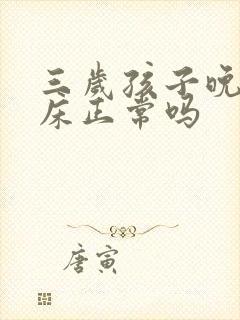 三岁孩子晚
床正常吗
唐寅